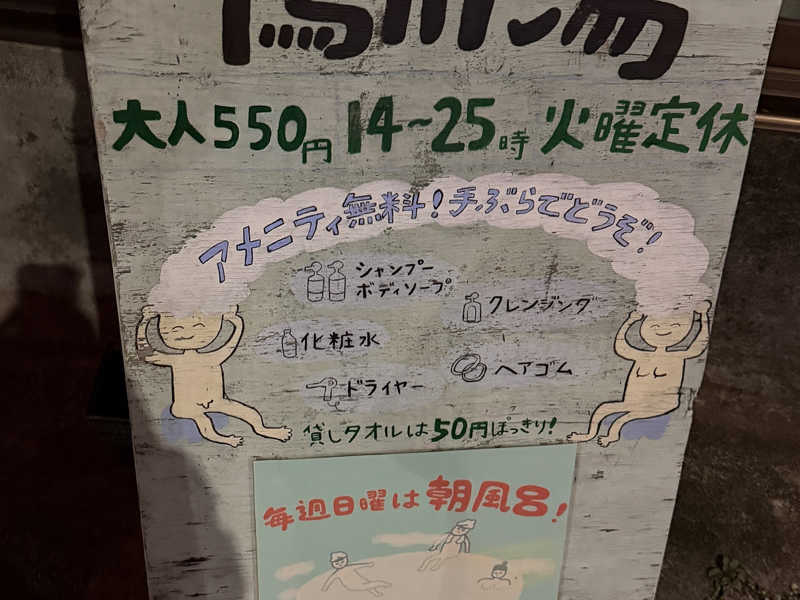 鴨川湯
大人550円 14~25時 火曜定休
アメニティ無料!手ぶらでどうぞ!
シャンプー
ボディソープ
クレンジング
化粧水
ヘアゴム
ドライヤー
貸しタオルは50円ぽっきり!
毎週日曜は朝風呂!